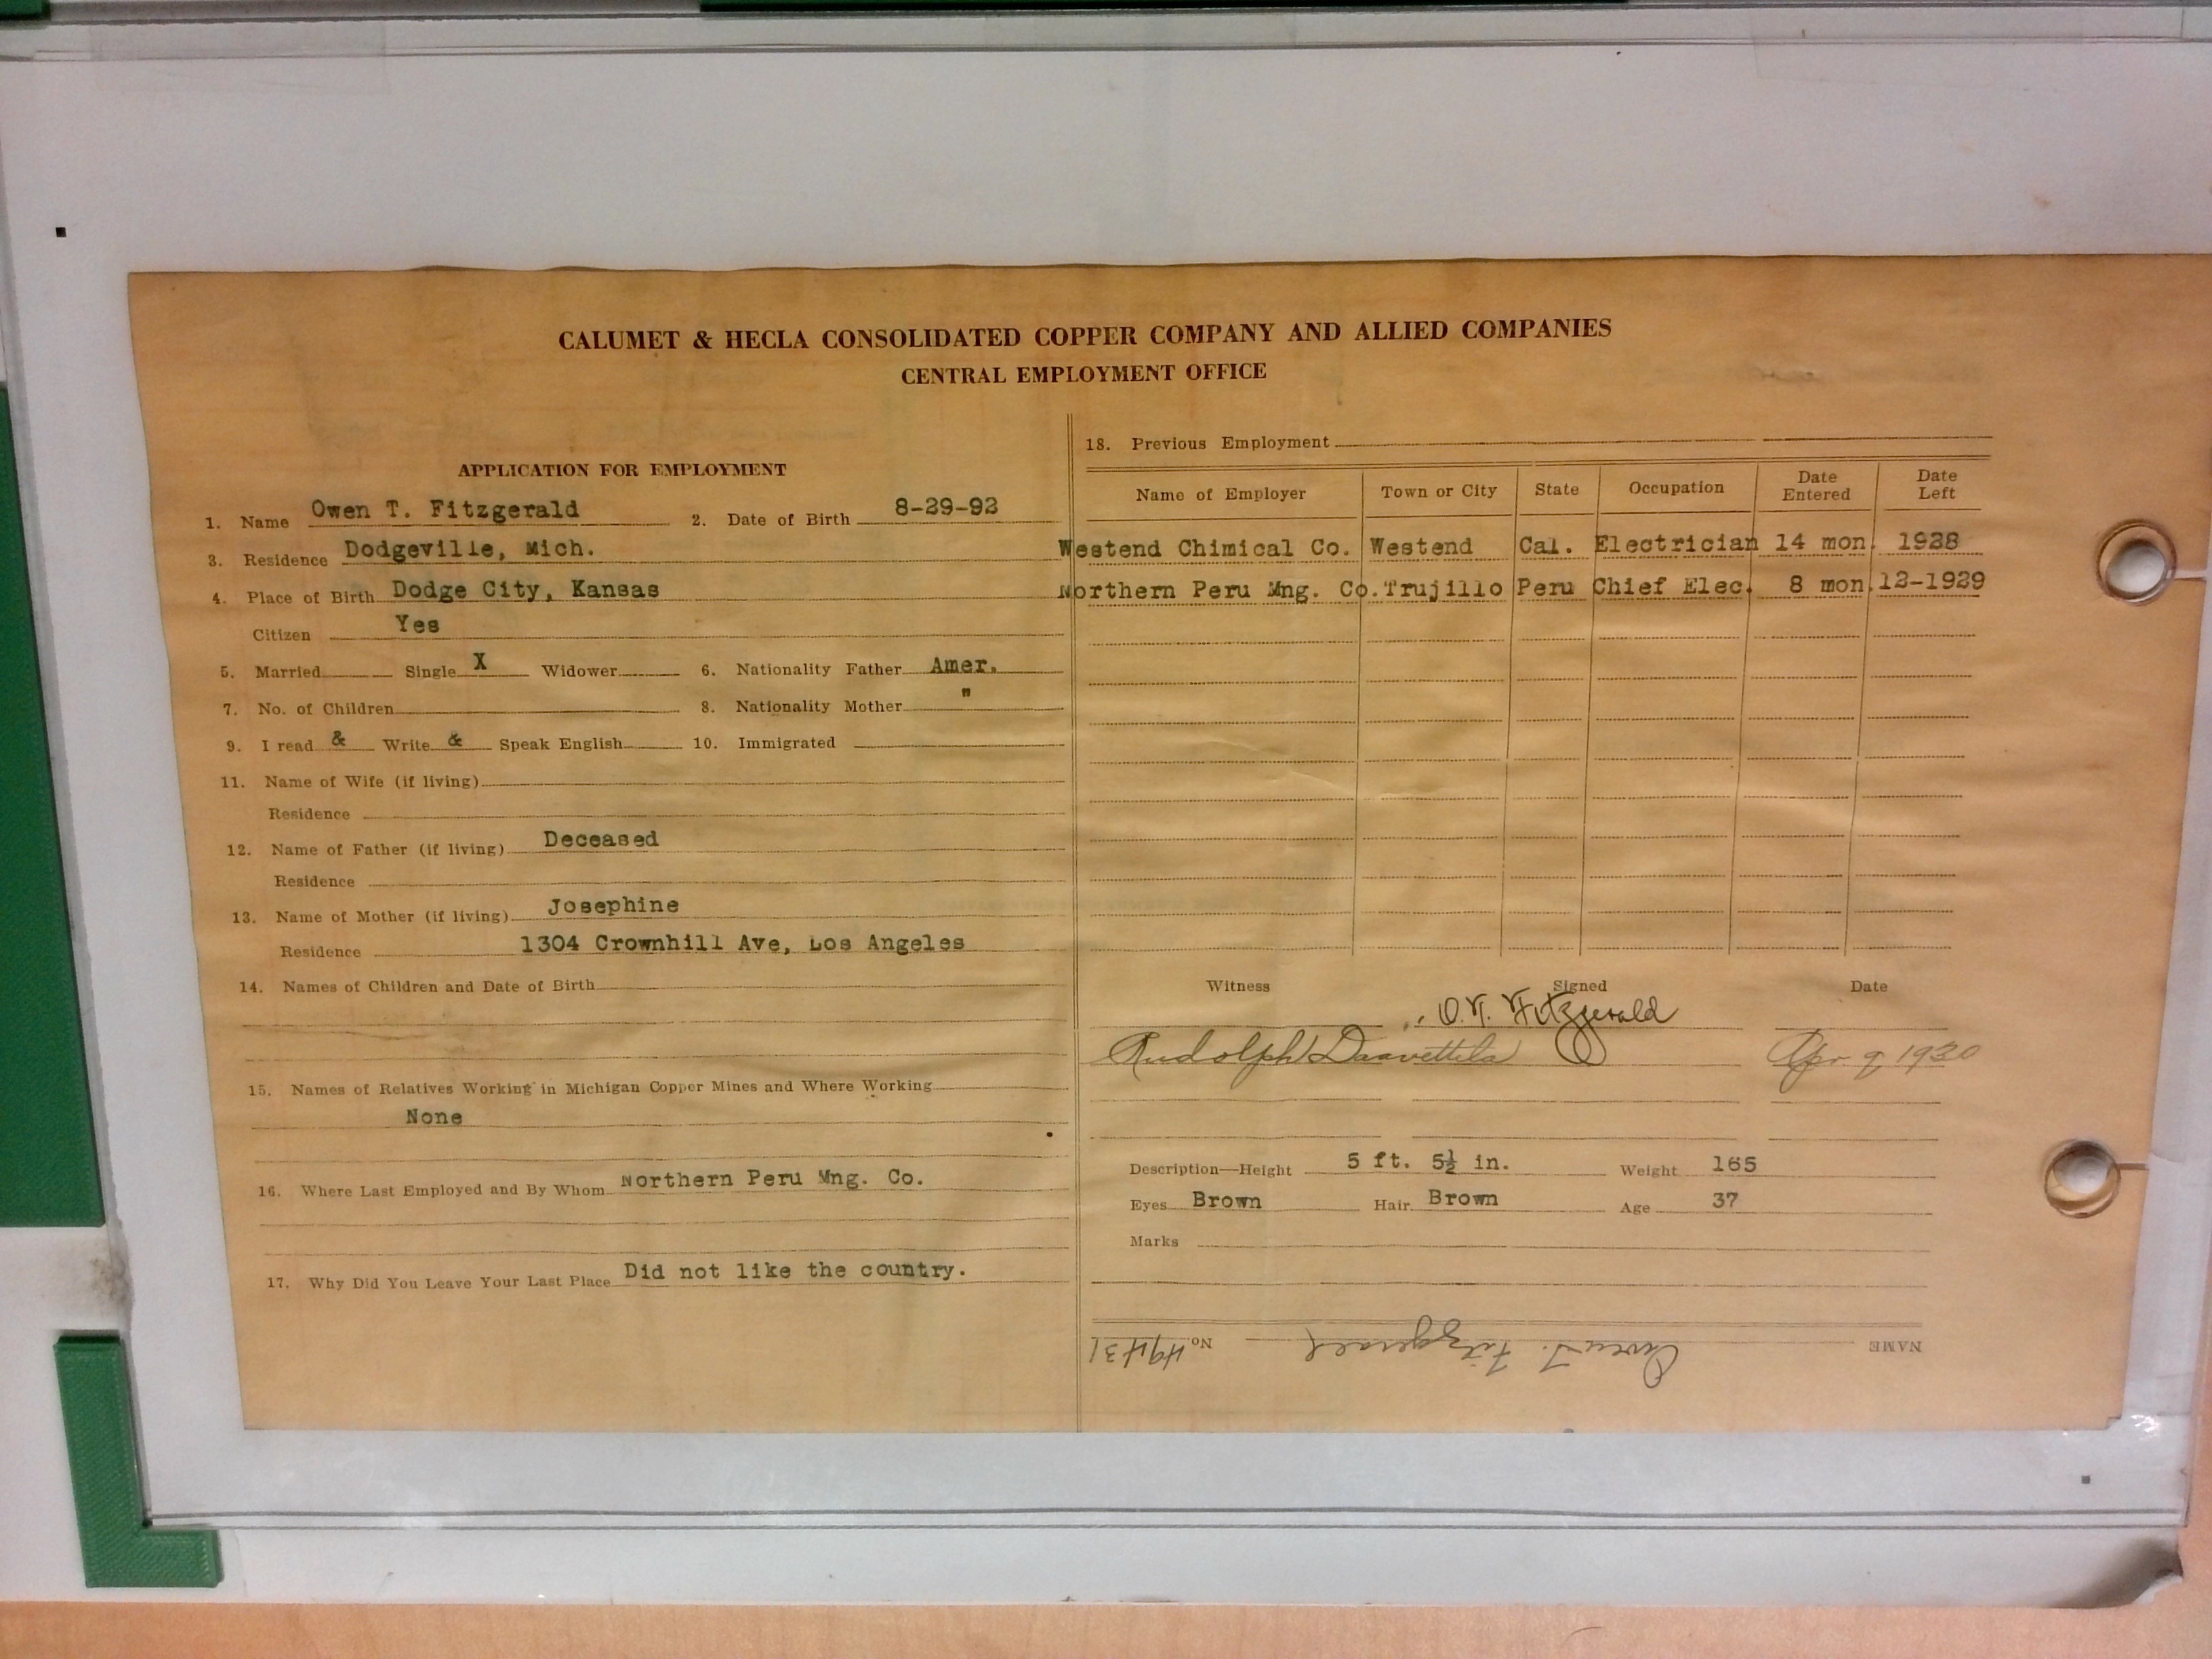 CALUMET & HECLA CONSOLIDATED COPPER COMPANY AND ALLIED COMPANIES
CENTRAL EMPLOYMENT OFFICE
APPLICATION FOR EMPLOYMENT
1. Name Owen T. Fitzgerald 2. Date of Birth 8-29-92
3. Residence Dodgeville, Mich.
4. Place of Birth Dodge City, Kansas
Citizen Yes
5. Married Single X Widower 6. Nationality Father Amer.
7. No. of Children 8. Nationality Mother "
9. I read & Write & Speak English 10. Immigrated
11. Name of Wife (if living)
Residence
12. Name of Father (if living) Deceased
Residence
13. Name of Mother (if living) Josephine
Residence 1304 Crownhill Ave, Los Angeles
14. Names of Children and Date of Birth
15. Names of Relatives Working in Michigan Copper Mines and Where Working
None
16. Where Last Employed and By Whom Northern Peru Mng. Co.
17. Why Did You Leave Your Last Place Did not like the country.
18. Previous Employment
Name of Employer Town or City State Occupation Date Entered Date Left
Westend Chimical Co. Westend Cal. Electrician 14 mon. 1928
Northern Peru Mng. Co. Trujillo Peru Chief Elec. 8 mon. 12-1929
Witness Signed Date
O.T. Fitzgerald
Rudolph Daavettila Apr. 9 1930
Description—Height 5 ft. 5½ in. Weight 165
Eyes Brown Hair Brown Age 37
Marks
NAME Owen T. Fitzgerald No. 49431